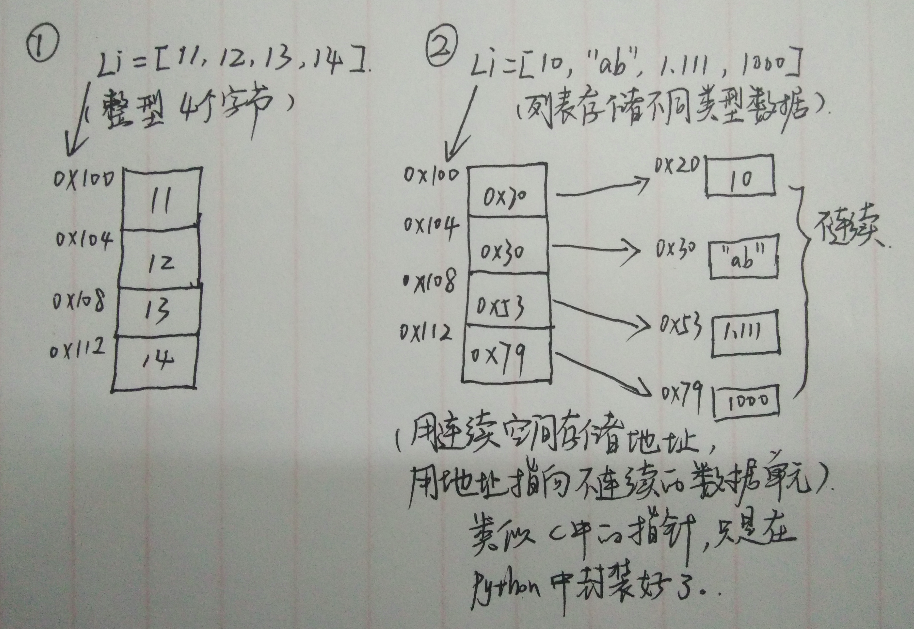 ① Li=[11, 12, 13, 14].
(整型 4个字节)
0x100 11
0x104 12
0x108 13
0x112 14
② Li=[10, "ab", 1.111, 1000]
(列表存储不同类型数据).
0x100 0x20
0x104 0x30
0x108 0x53
0x112 0x79
0x20 10
0x30 "ab"
0x53 1.111
0x79 1000
不连续.
(用连续空间存储地址,
用地址指向不连续的数据单元).
类似C中的指针,只是在
Python中封装好了..